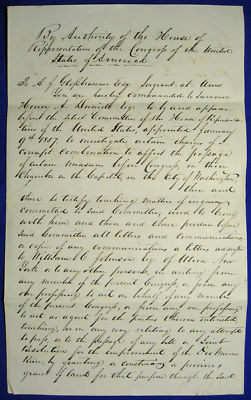 By Authority of the House of
Representatives of the Congress of the United
States of America
To A J Glossbrenner Esq Sergeant at Arms
You are hereby commanded to summon
Henry A Esq. to be and appear
before the select Committee of the House of Represen
tatives of the United States, appointed January
9th 1857 to investigate certain charges of
corrupt combinations to affect the passage
of certain measures before Congress, in their
Chamber in the Capitol in the City of Washington
then and
there to testify touching matters of inquiry
committed to said Committee, and to bring
with him and then and there produce before
said Committee all letters and communications
a copy of any communications & letters address
to William W Johnson Esq of Utica New
York or to any other persons, in writing from
any member of the present Congress, or from any
one professing to act on behalf of any member
of the present Congress, or from any one professing
to act as agent for the parties therein interested
touching, or in any way relating to any attempt
to pass, or to the passage of any bill or Joint
Resolution for the improvement of the Des Moines
River, by granting or a previous
grant of land for that purpose through the said